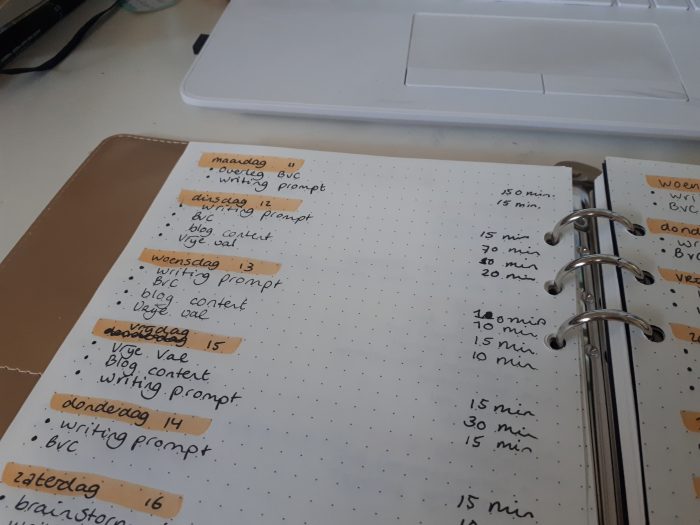 maandag 11
• Overleg BVC 150 min.
• writing prompt 15 min.
dinsdag 12
• writing prompt 15 min
• BVC 70 min
• blog content min
Vrye val 20 min
woensdag 13
• writing prompt min
BVC 70 min
• blog content 15 min
• Vrye val 10 min
vrydag 15
• Vrye Val 15 min
Blog content 30 min
• writing prompt 15 min
donderdag 14
• writing prompt 15 min
• BVC
zaterdag 16
• brainstorm
woen
• wri
BVC
dond
• w
BV
vr